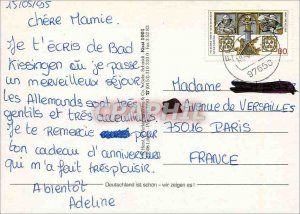 15/05/95
Chère Mamie.
Je t'écris de Bad
Kissingen où je passe
un merveilleux séjour
les Allemands sont très
gentils et très accueillants
Je te Remercie pour
ton cadeau d'anniversaire
qui m'a fait très plaisir.
A bientôt
Adeline
80
97650
Madame
Avenue de VERSAILLES
75016 PARIS
FRANCE
Deutschland ist schön – wir zeigen es!